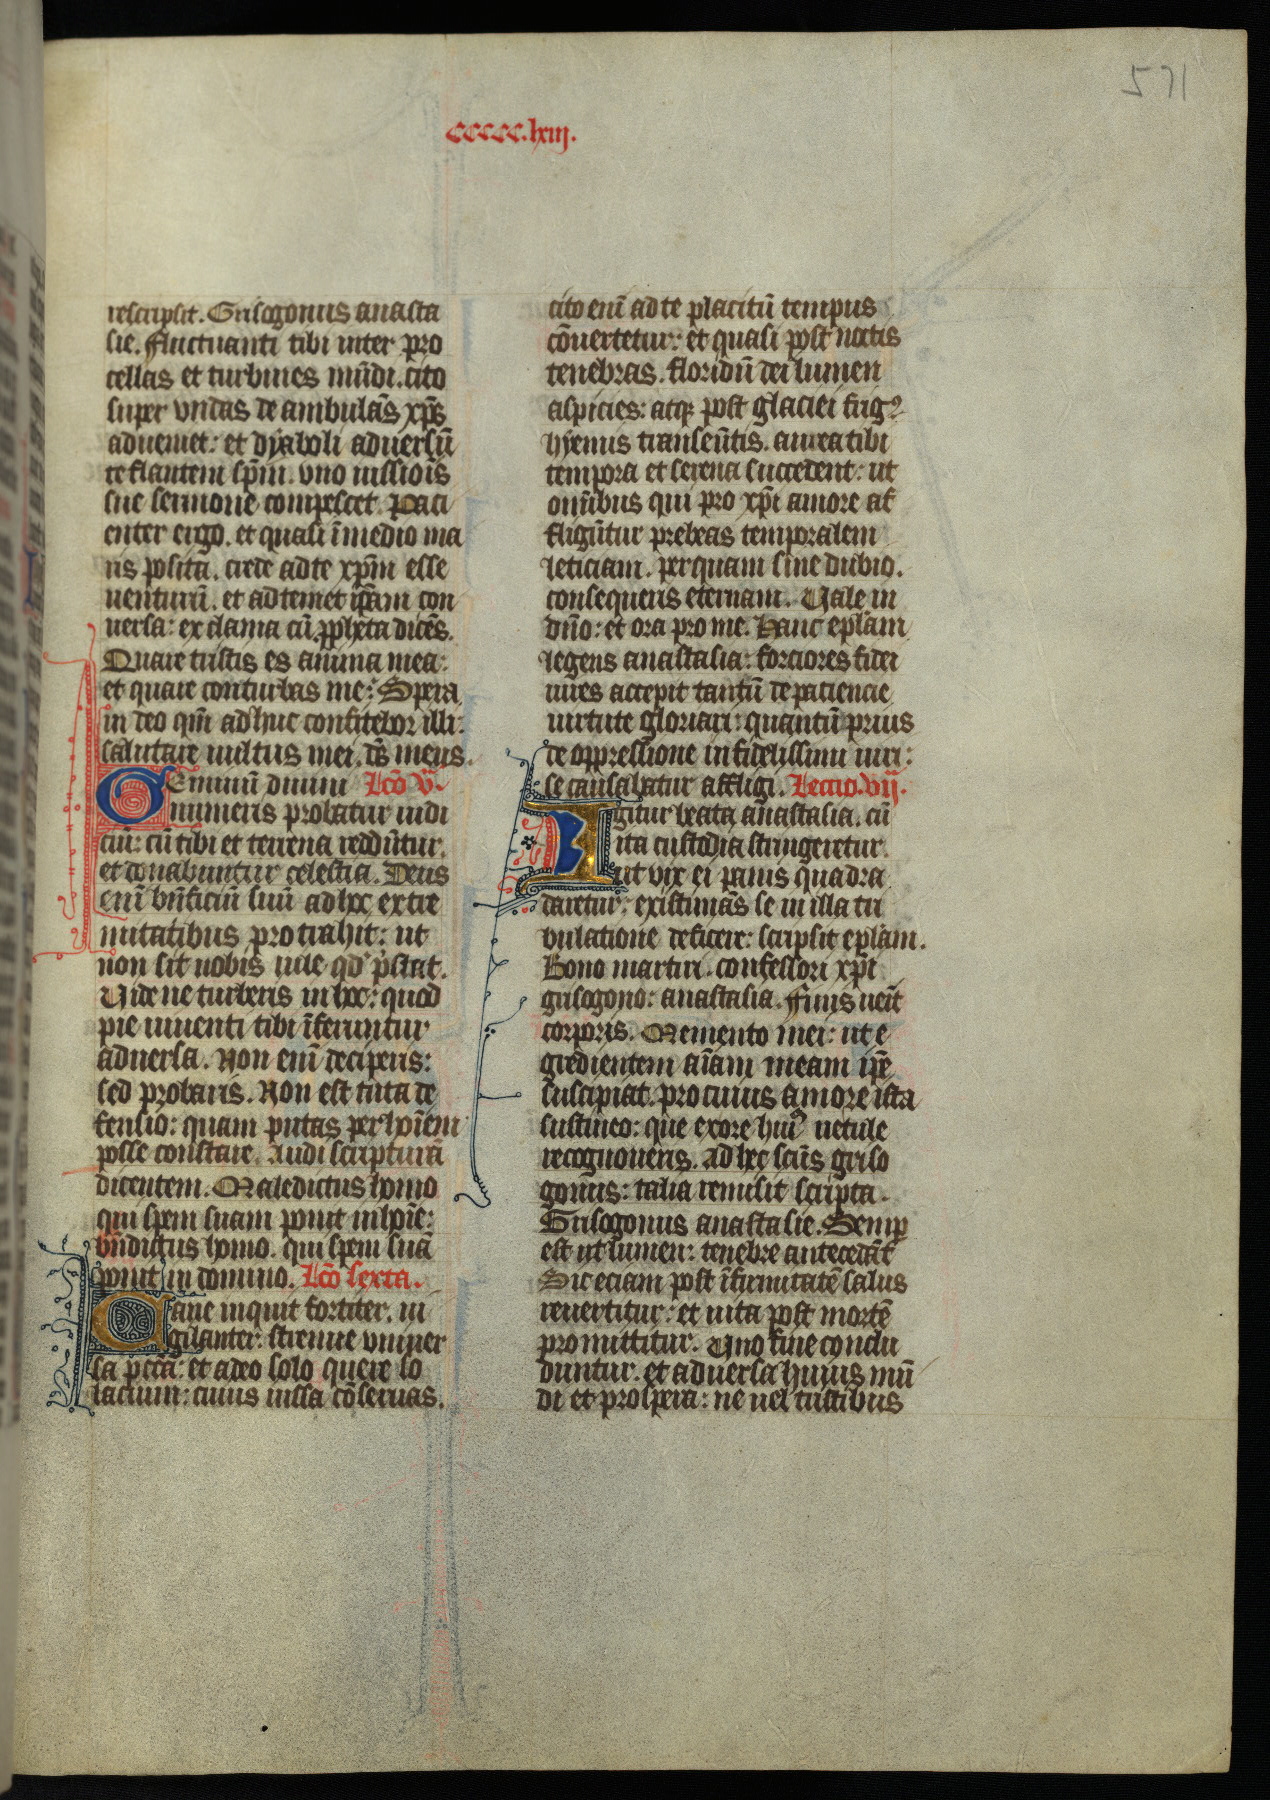 571
CCCCC.lxiij.
rescripsit. Grisogonus anasta
sie. Fluctuanti tibi inter pro
cellas et turbines mūdi. cito
super vndas de ambulās xp̄s
adueniet: et dyaboli aduersū
te flantem sp̄m. vno iussiōis
sue sermone compescet. Paci
enter ergo. et quasi ī medio ma
ris posita. crede ad te xp̄m esse
uenturū. et ad temet ip̄am con
uersa: exclama cū ꝓph̄eta dicēs.
Quare tristis es anima mea:
et quare conturbas me: Spera
in deo qm̄ ad huc confitebor illi:
salutare uultus mei. d̄s meus.
Geminū diuini Lc̄o v̄.
numeris probatur iudi
ciū: cū tibi et terrena reddūtur.
et donabuntur celestia. Deus
enī bn̄ficiū suū ad hec extre
mitatibus protrahit: ut
non sit uobis uile qd' p̄stat.
Vide ne turberis in hoc: quod
pie uiuenti tibi īferuntur
aduersa. Non enī deciperis:
sed probaris. Non est tuta de
fensio: quam putas per hoīem
posse constare. Audi scripturā
dicentem. Maledictus homo
qui spem suam ponit in hoīe:
bn̄dictus homo. qui spem suā
ponit in domino. Lc̄o sexta.
Caue inquit fortiter. ui
gilanter: strenue vniuer
sa pecc̄a: et a deo solo quere so
lacium: cuius iussa cōseruas.
cito enī ad te placitū tempus
cōuertetur: et quasi post noctis
tenebras. floridū dei lumen
aspicies: atqꝫ post glaciei frig9
hyemis transeūtis. aurea tibi
tempora et serena succedent: ut
om̄ibus qui pro xp̄i amore af
fligūtur prebeas temporalem
leticiam. per quam sine dubio.
consequeris eternam. Vale in
dn̄o: et ora pro me. Hanc ep̄lam
legens anastasia: forciores fidei
uires accepit tantū de paciencie
uirtute gloriari: quantū prius
de oppressione infidelissimi uiri:
se causabatur affligi. Lectio. vij.
Igitur beata anastasia. cū
ita custodia stringeretur.
ut vix ei panis quadra
daretur: existimās se in illa tri
bulatione deficere: scripsit ep̄lam.
Bono martiri. confessori xp̄i
grisogono: anastasia. Finis uen̄it
corporis. Memento mei: ut e
gredientem aīam meam ip̄e
suscipiat. pro cuius amore ista
sustineo: que ex ore hui9 uetule
recognoueris. Ad hec sc̄us griso
gonus: talia remisit scripta.
Grisogonus anastasie. Semꝑ
est ut lumen: tenebre antecedāt
Sic eciam post īfirmitatē salus
reuertitur: et uita post mortē
promittitur. Uno fine conclu
duntur. et aduersa huius mū
di et prospera: ne uel tristibus